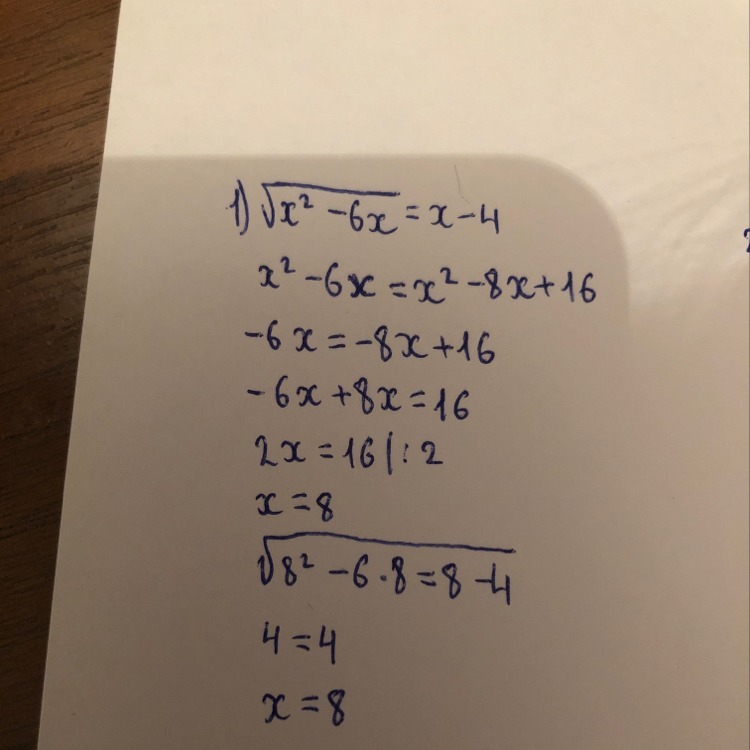 1) √(x² - 6x) = x - 4
x² - 6x = x² - 8x + 16
-6x = -8x + 16
-6x + 8x = 16
2x = 16 | : 2
x = 8
√(8² - 6 · 8 = 8 - 4)
4 = 4
x = 8